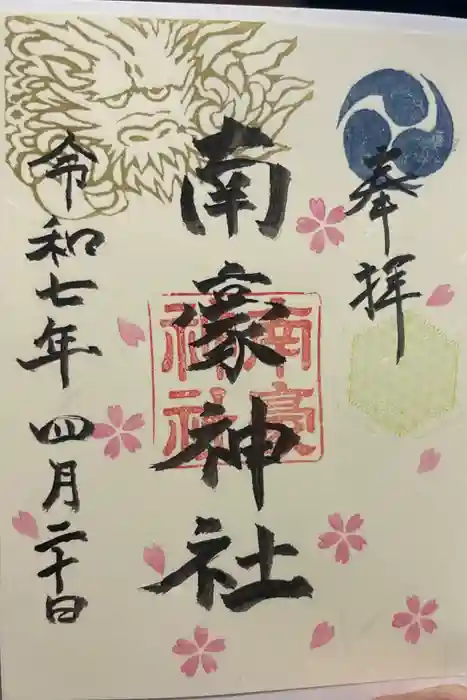 奉拝
南豪神社
南豪
神社
令和七年四月二十日